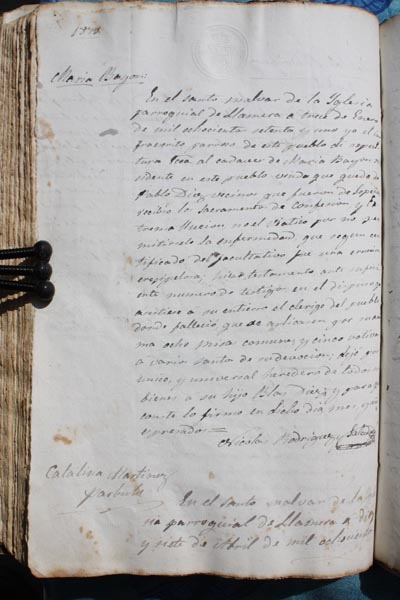 1871
Maria Bayon
En el santo malvar de la Yglesia
parroquial de Llamera a trece de Enero
de mil ochocientos setenta y uno yo el in
frascrito parroco de este pueblo di sepul
tura al cadaver de Maria Bayon
sidente en este pueblo viuda que quedo de
Pablo Diez, vecinos que fueron de
recibio los Sacramentos de Confesion y Es
trema Uncion no el Viatico por no per
mitirselo la enfermedad que segun cer
tificado del facultativo fue una
erisipela; hizo testamento ante
ente numero de testigos en el dispuso
asistiese a su entierro el clerigo del pueblo
donde fallecio que se aplicasen por su al
ma ocho misas comunes y cinco votivas
a varios santos de su devocion; dejo por
unico, y universal heredero de todos sus
bienes a su hijo Blas Diez, y para que
conste lo firmo en dicho dia mes, y año
espresados=
Nicolas Rodriguez y
Catalina Martinez
Parbula
En el santo malvar de la
ia parroquial de Llamera a diez
y siete de Abril de mil ochocientos